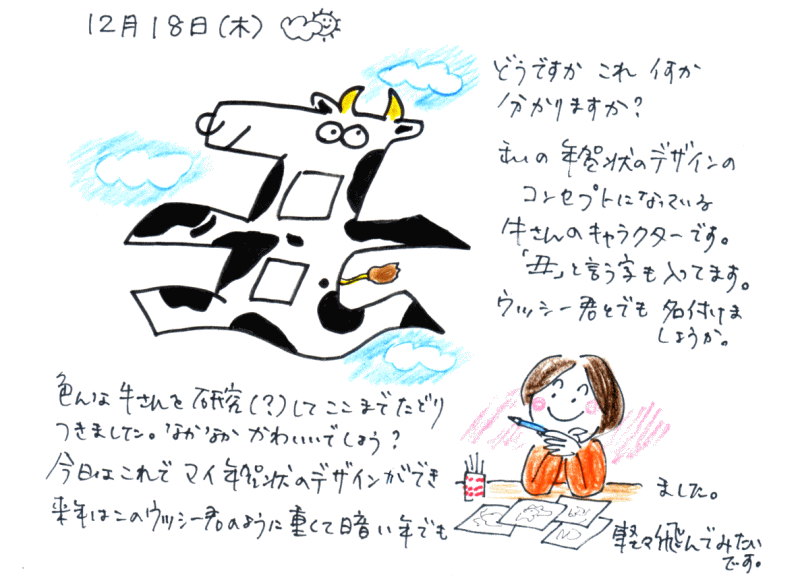 12月18日(木)
どうですか これ 何か
分かりますか?
私の 年賀状のデザインの
コンセプトになっている
牛さんのキャラクターです。
「丑」と言う字も入ってます。
ウッシー君とでも 名付けま
しょうか。
色んな牛さんを研究(?)してここまでたどり
つきました。なかなか かわいいでしょう?
今日はこれで マイ年賀状のデザインができ
ました。
来年はこのウッシー君のように重くて暗い年でも
軽々飛んでみたい
です。